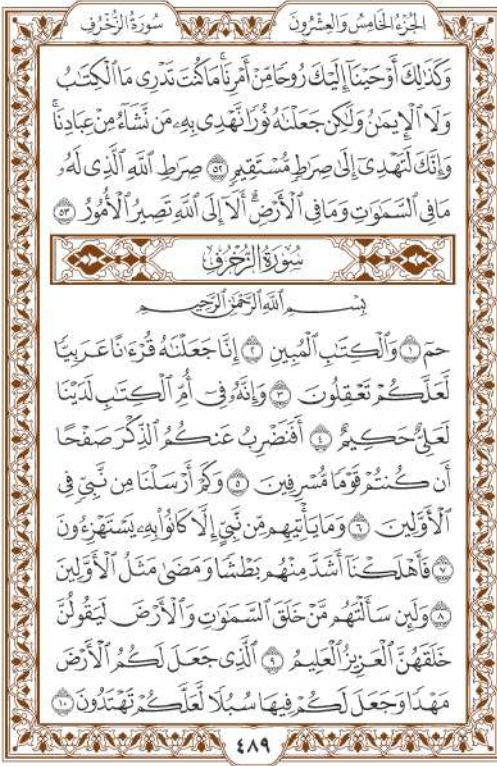 سُورَةُ الزُّخْرُفِ
الجُزْءُ الخَامِسُ وَالعِشْرُونَ
وَكَذَٰلِكَ أَوْحَيْنَآ إِلَيْكَ رُوحًا مِّنْ أَمْرِنَاۚ مَا كُنتَ تَدْرِى مَا ٱلْكِتَٰبُ
وَلَا ٱلْإِيمَٰنُ وَلَٰكِن جَعَلْنَٰهُ نُورًا نَّهْدِى بِهِۦ مَن نَّشَآءُ مِنْ عِبَادِنَاۚ
وَإِنَّكَ لَتَهْدِىٓ إِلَىٰ صِرَٰطٍ مُّسْتَقِيمٍ ٥٢ صِرَٰطِ ٱللَّهِ ٱلَّذِى لَهُۥ
مَا فِى ٱلسَّمَٰوَٰتِ وَمَا فِى ٱلْأَرْضِۗ أَلَآ إِلَى ٱللَّهِ تَصِيرُ ٱلْأُمُورُ ٥٣
سُورَةُ الزُّخْرُفِ
بِسْمِ ٱللَّهِ ٱلرَّحْمَٰنِ ٱلرَّحِيمِ
حمٓ ١ وَٱلْكِتَٰبِ ٱلْمُبِينِ ٢ إِنَّا جَعَلْنَٰهُ قُرْءَٰنًا عَرَبِيًّا
لَّعَلَّكُمْ تَعْقِلُونَ ٣ وَإِنَّهُۥ فِىٓ أُمِّ ٱلْكِتَٰبِ لَدَيْنَا
لَعَلِىٌّ حَكِيمٌ ٤ أَفَنَضْرِبُ عَنكُمُ ٱلذِّكْرَ صَفْحًا
أَن كُنتُمْ قَوْمًا مُّسْرِفِينَ ٥ وَكَمْ أَرْسَلْنَا مِن نَّبِىٍّ فِى
ٱلْأَوَّلِينَ ٦ وَمَا يَأْتِيهِم مِّن نَّبِىٍّ إِلَّا كَانُوا۟ بِهِۦ يَسْتَهْزِءُونَ
٧ فَأَهْلَكْنَآ أَشَدَّ مِنْهُم بَطْشًا وَمَضَىٰ مَثَلُ ٱلْأَوَّلِينَ
٨ وَلَئِن سَأَلْتَهُم مَّنْ خَلَقَ ٱلسَّمَٰوَٰتِ وَٱلْأَرْضَ لَيَقُولُنَّ
خَلَقَهُنَّ ٱلْعَزِيزُ ٱلْعَلِيمُ ٩ ٱلَّذِى جَعَلَ لَكُمُ ٱلْأَرْضَ
مَهْدًا وَجَعَلَ لَكُمْ فِيهَا سُبُلًا لَّعَلَّكُمْ تَهْتَدُونَ ١٠
٤٨٩